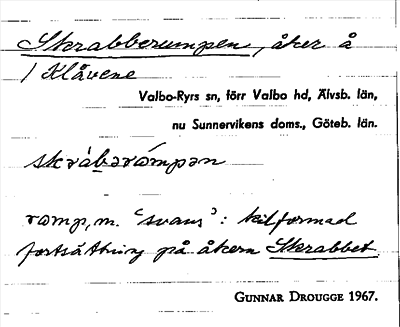 Skrabberumpen, åker å
1 Klåvene
Valbo-Ryrs sn, förr Valbo hd, Älvsb. län,
nu Sunnervikens doms., Göteb. län.
skràbərámpən
ramp, m. 'svans': kilformad
fortsättning på åkern Skrabbet
GUNNAR DROUGGE 1967.